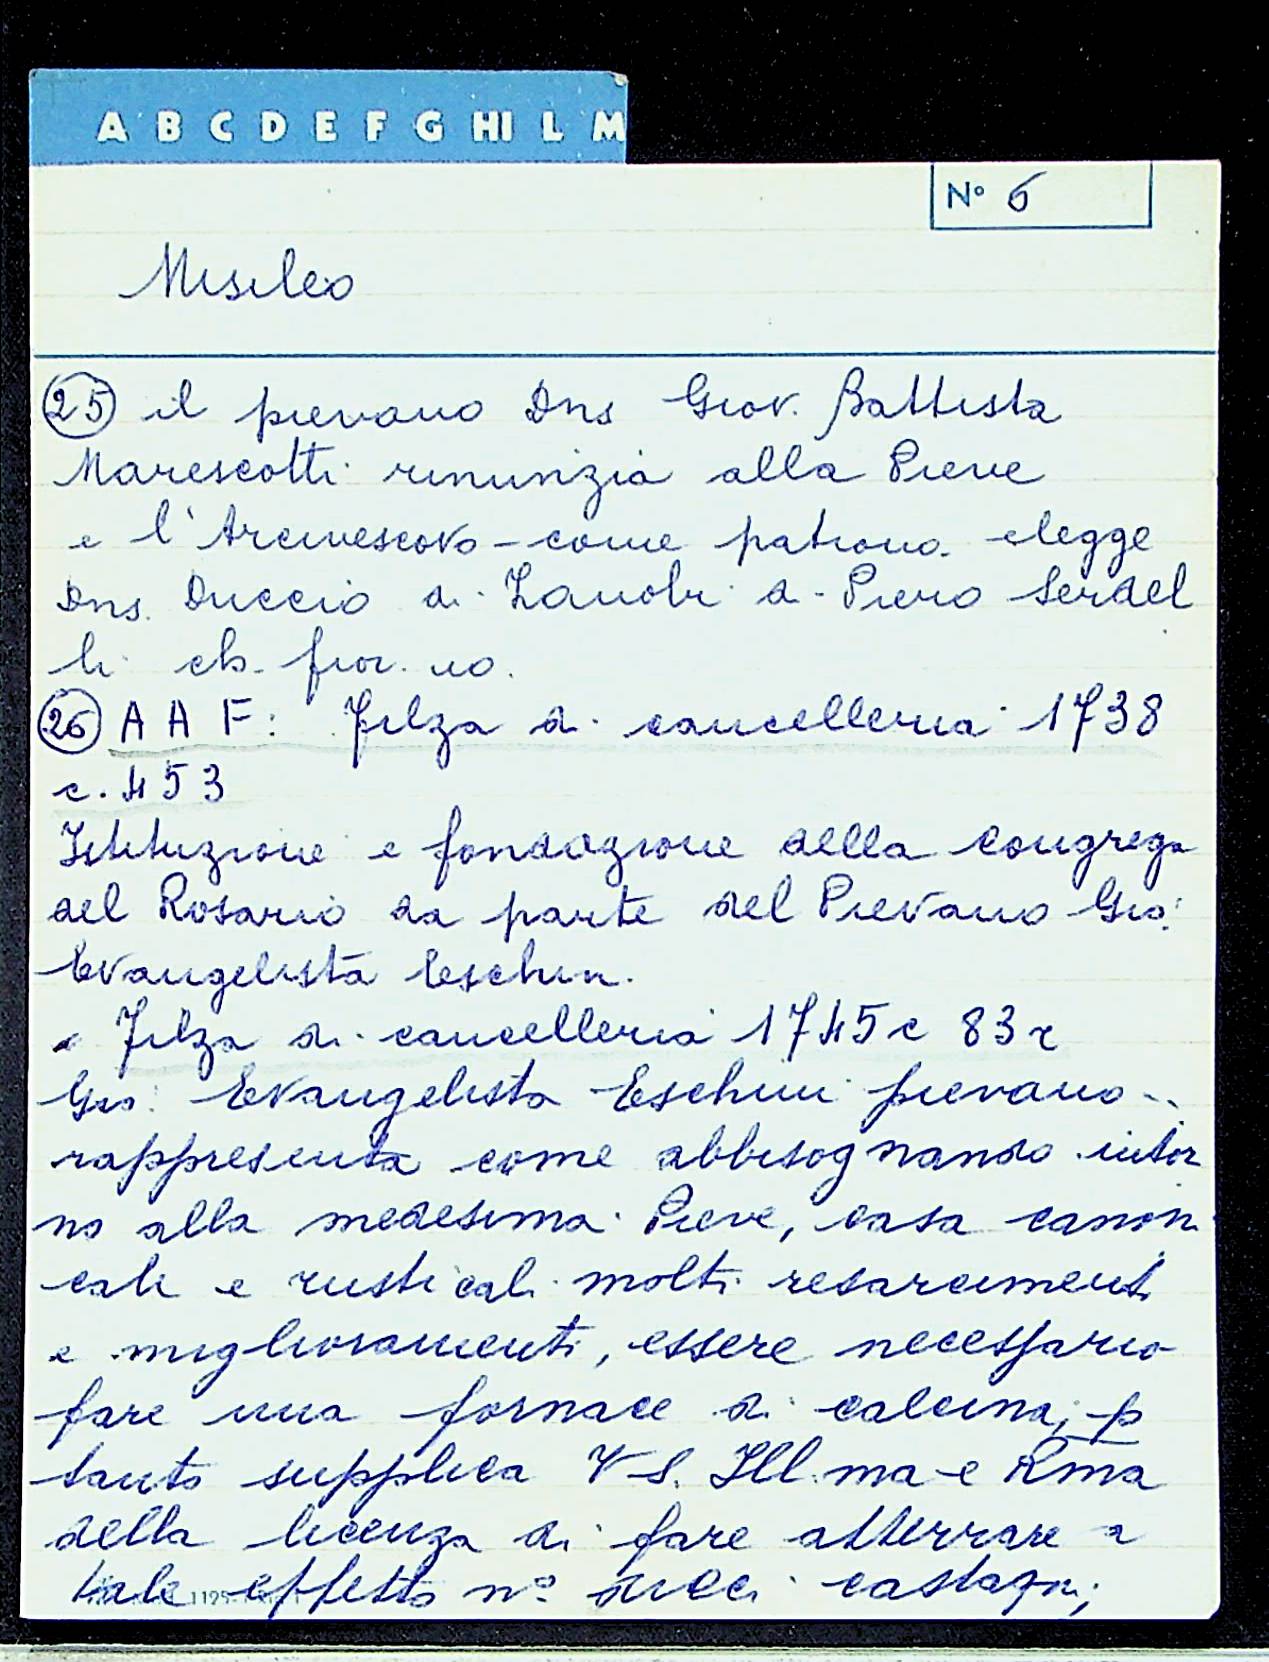 A B C D E F G HI L M
N° 6
Misileo
25 il pievano Dns Giov. Battista
Marescotti rinunzia alla Pieve
e l'Arcivescovo - come patrono elegge
Dns. Duccio di Zanobi di Piero Serdel
li fior.no.
26 A A F: Filza di cancelleria 1738
c. 453
Istituzione e fondazione della Congrega
del Rosario da parte del Pievano Gio:
Evangelista Eschin.
Filza di cancelleria 1745 c 83 r
Gio: Evangelista Eschini pievano ..
rappresenta come abbisognando intor
no alla medesima Pieve, casa canoni
cali e rusticali molti resarcimenti
e miglioramenti, essere necessario
fare una fornace di calcina, p
tanto supplica V S. Ill.ma e Rma
della licenza di fare atterrare a
tale effetto n° dieci castagni,